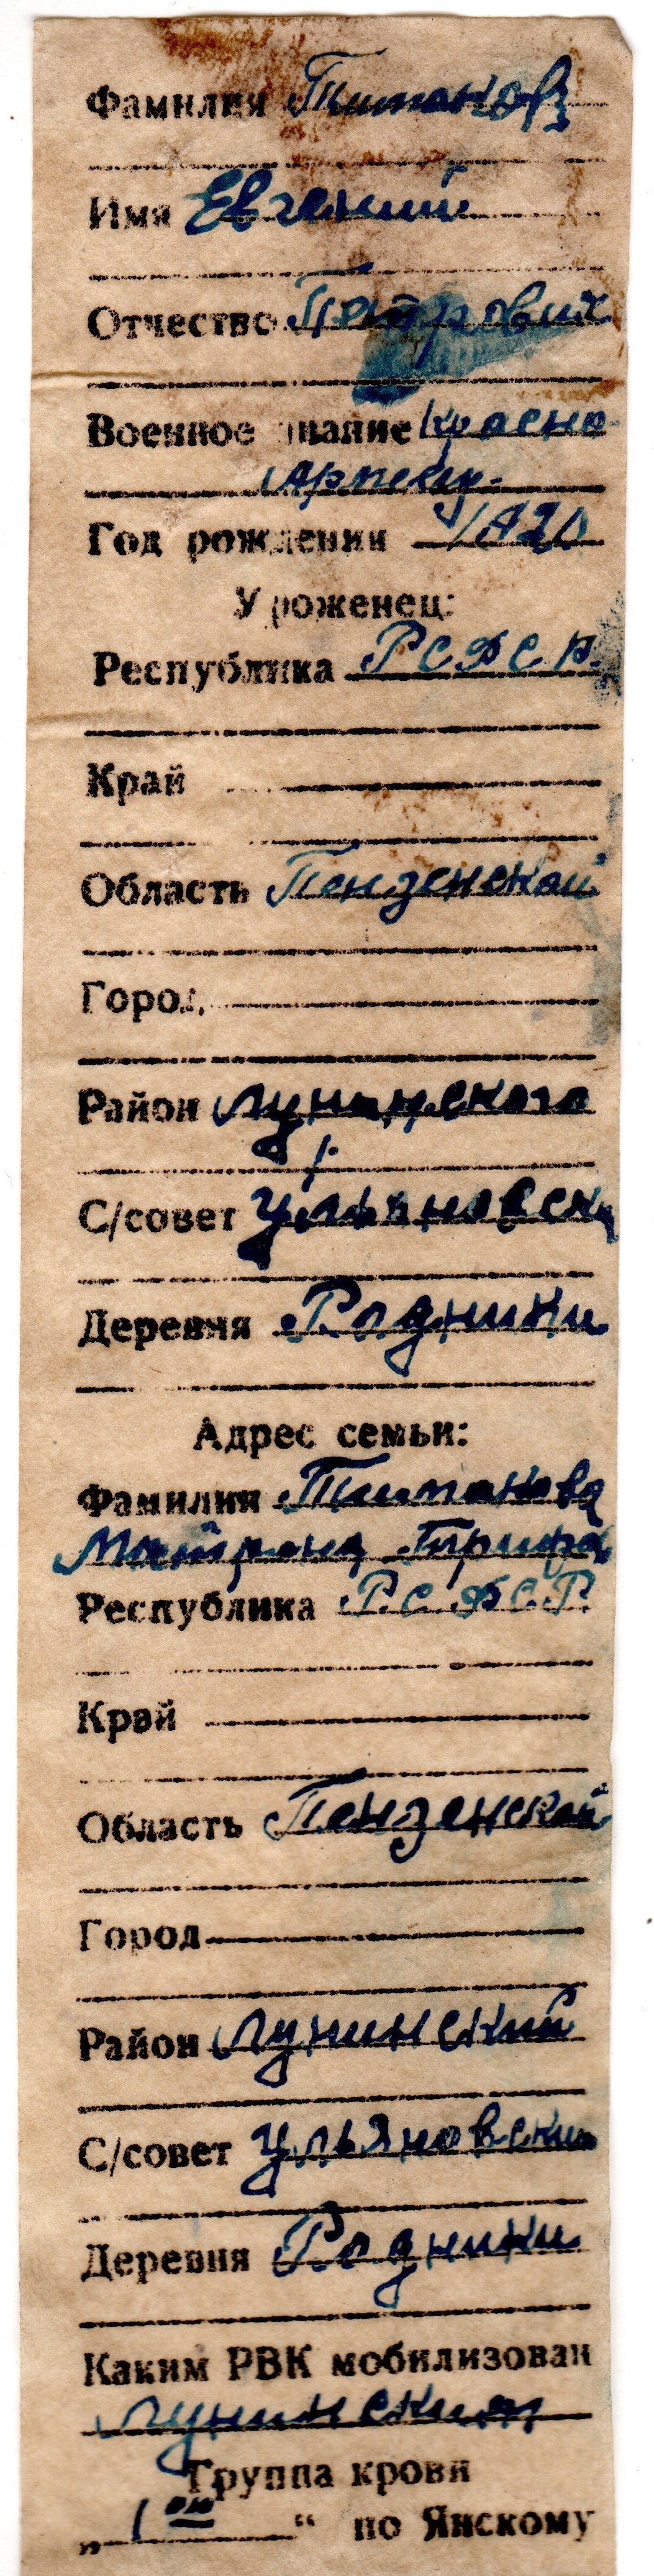 Фамилия Типанов
Имя Евгений
Отчество Петрович
Военное звание Красно-
Армеец.
Год рождения 1921
Уроженец:
Республика РСФСР.
Край
Область Пензенской
Город
Район Лунинского
С/совет Ульяновск
Деревня Родники
Адрес семьи:
Фамилия Типанова
Матрена
Республика Р.С.Ф.С.Р.
Край
Область Пензенской
Город
Район Лунинский
С/совет Ульяновский
Деревня Родники
Каким РВК мобилизован
Лунинским
Группа крови
„ I ой “ по Янскому